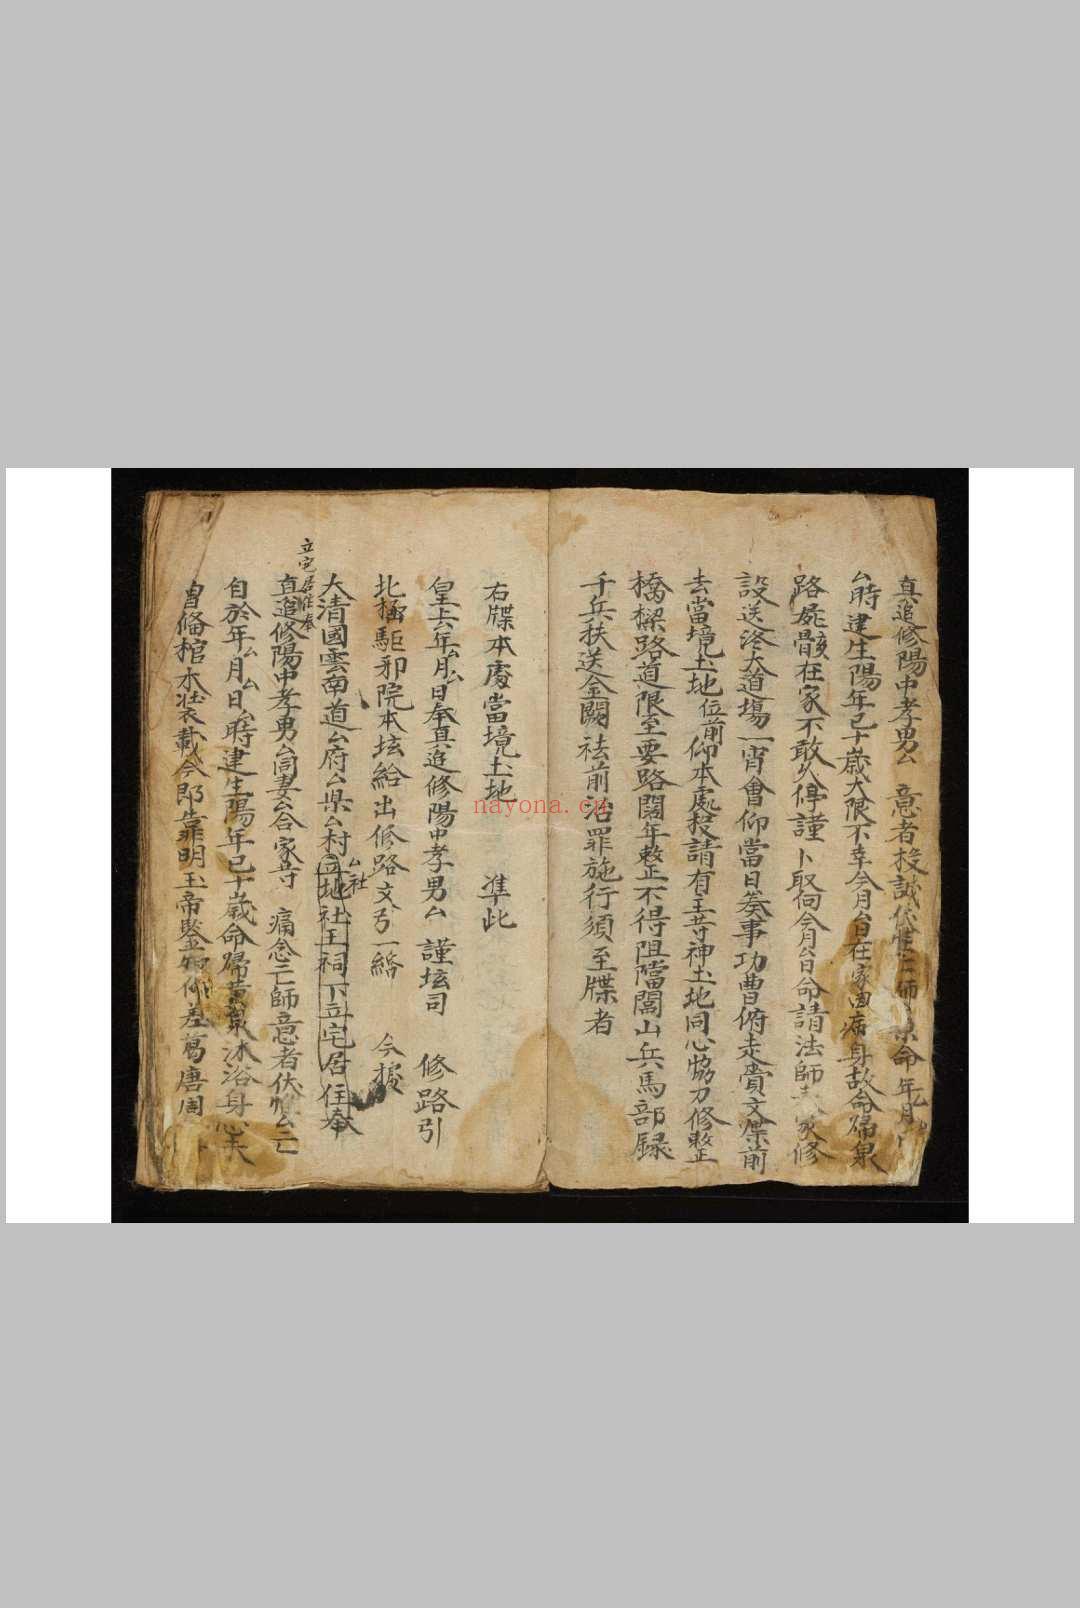 真追修陽中孝男厶 意者投誠伏惟亡師 命年月
厶時建生陽年已十歲大限不幸今月厶日在家因病身故命歸泉
路屍骸在家不敢久停謹卜取向今月厶日命請法師 家修
設送終大道場一宵會仰當日奏事功曹俯走賫文牒前
去當境土地位前仰本處投請有王廿神土地同心協力修整
橋樑路道限至要路闊年整不得阻攩闖山兵馬部録
千兵扶送金闕祛前治罪施行須至牒者
右牒本處當境土地 準此
皇上六年厶月厶日奉真追修陽中孝男厶 謹坛司 修路引
北極駈邪院本坛給出修路文引一𦈏 今據
大清國雲南道厶府厶県厶村立地社王祠下立宅居住奉
厶社
立宅居住奉
真追修陽中孝男厶同妻厶合家廿 痛念亡師意者伏惟厶亡
自於年厶月厶日厶時建生陽年已十歲命歸黄泉沐浴身
曽俻棺木装載今郎靠明玉帝鑒 仰差葛唐周
nayona.cn